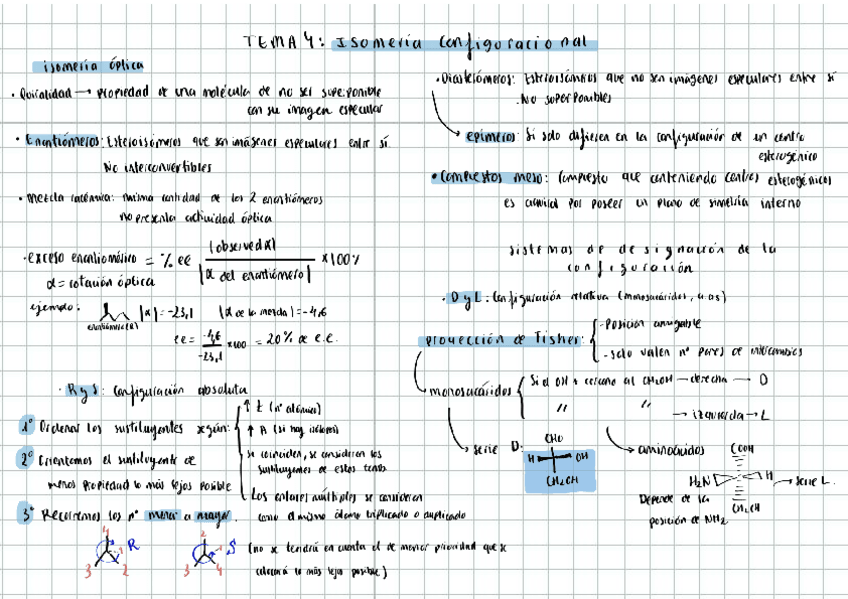 TEMA 4: Isomería configuracional
isomería óptica
· Quiralidad → propiedad de una molécula de no ser superponible
con su imagen especular
· Enantiómeros: Esteroisómeros que son imágenes especulares entre sí
No interconvertibles
· mezcla racémica: misma cantidad de los 2 enantiómeros
no presenta actividad óptica
· exceso enantiomérico = % ee |observed α| / |α del enantiómero| x100%
α = rotación óptica
ejemplo: |α| = -23,1 |α de la mezcla| = -4,6
enantiómero (R)
ee = -4,6 / -23,1 x100 = 20% de e.e.
· R y S: configuración absoluta
1º Ordenar los sustituyentes según:
↑ Z (nº atómico)
↑ A (si hay isótopos)
se coinciden, se consideran los
sustituyentes de estos
Los enlaces múltiples se consideran
como el mismo átomo triplicado o duplicado
2º Orientamos el sustituyente de
menos propiedad lo más lejos posible
3º Recorremos los nº menor a mayor.
4 R 1 3 2
2 S 1 3 4
(no se tendrá en cuenta el de menor prioridad que se
colocará lo más lejos posible)
· Diasterómeros: Esteroisómeros que no son imágenes especulares entre sí
. No superponibles
epímeros: Si solo difieren en la configuración de un centro
esterogénico
· Compuestos meso: Compuesto que conteniendo centros esterogénicos
es aquiral por poseer un plano de simetría interno
sistemas de designación de la
configuración
· D y L: Configuración relativa (monosacáridos, a.as)
proyección de Fisher:
- Posición
- solo valen nº pares de intercambios
monosacáridos
Si el OH + cercano al CH₂OH — derecha → D
" " → izquierda → L
serie D:
CHO
H OH
CH₂OH
aminoácidos
COOH
H₂N H → serie L.
CH₂OH
Depende de la
posición de NH₂